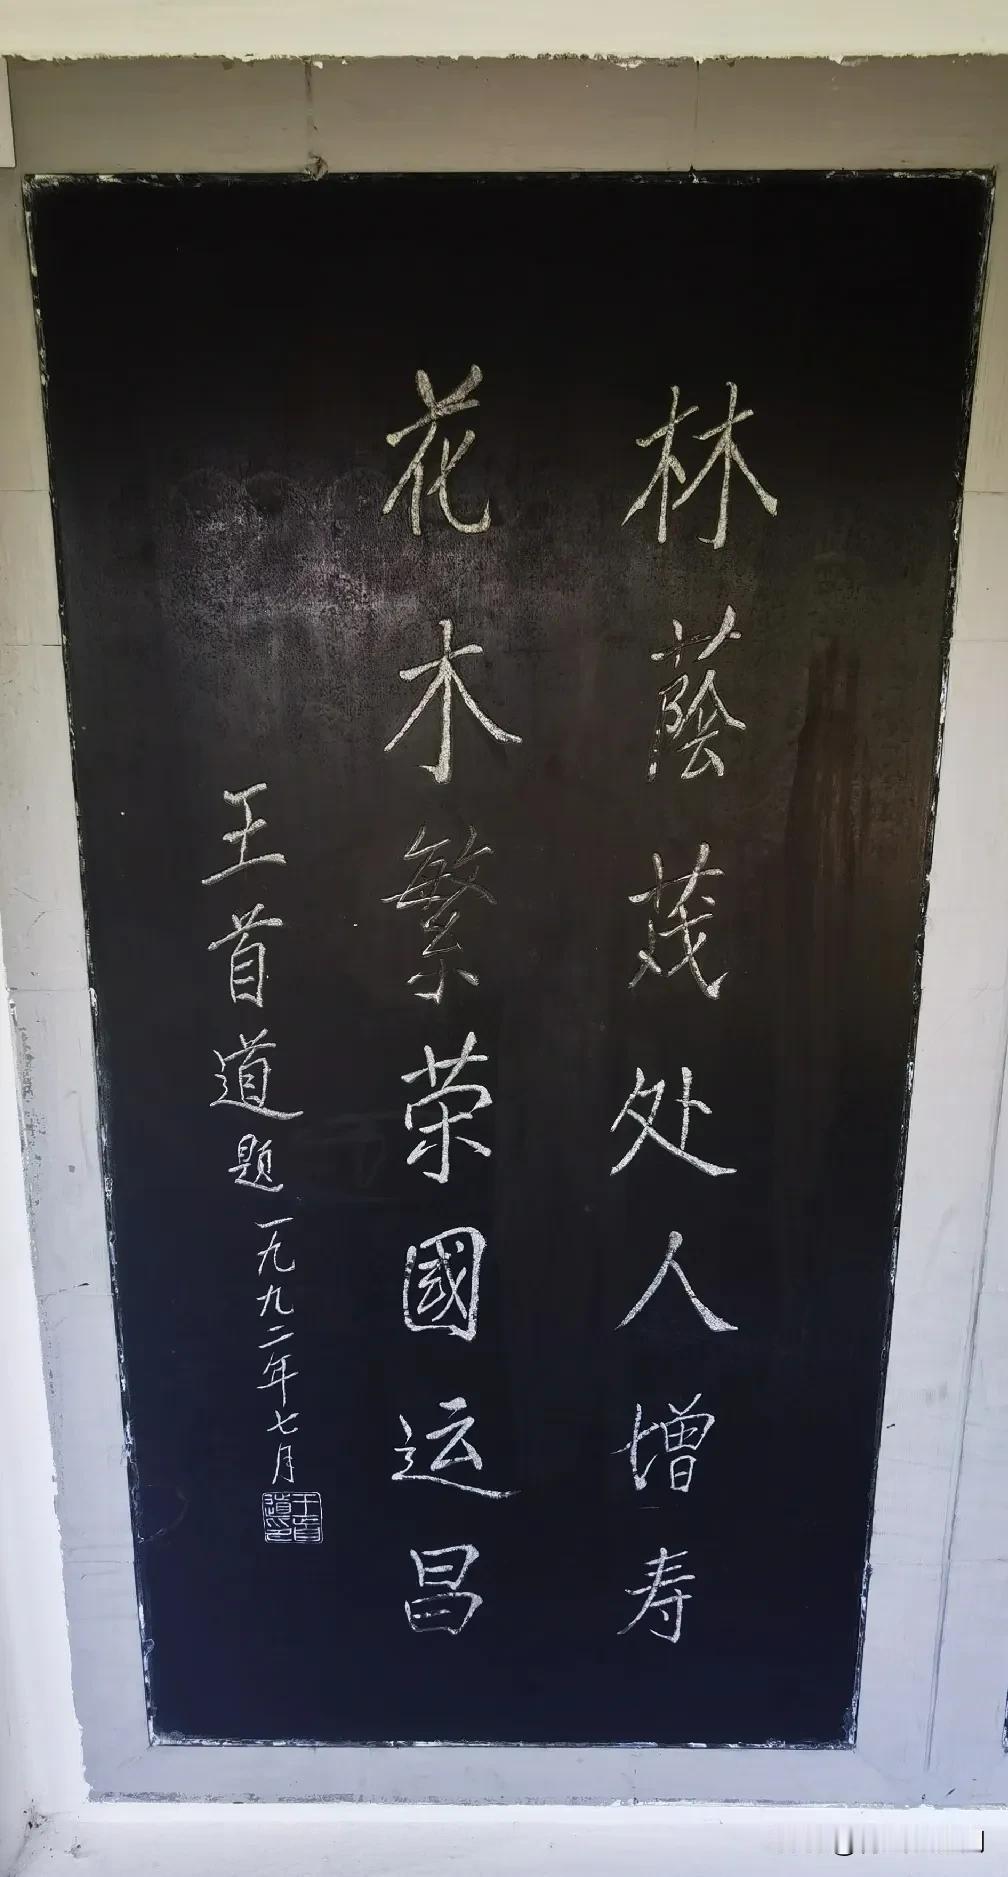 林蔭茂处人增寿
花木繁荣國运昌
王首道题一九九二年七月
王首道印